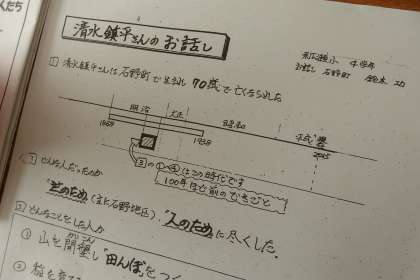 くんたち
清水鎮平さんのお話し
小 4学年
お話し 石野町 鈴木 功
① 清水鎮平さんは石野町で生まれ 70歳で亡くなられた
明治 大正 昭和 平成
1868 1938 2015
③の①〜④はこの時代です
100年ほど前のできごと
② どんな人だったのか
"世のため (主に石野地区)、"人のため"に尽くした。
③ どんなことをした人か
① 山を開墾し"田んぼ"をつく
かいこん